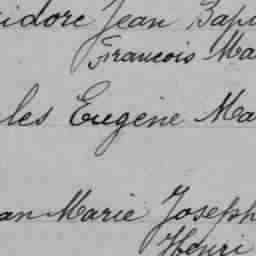 idore Jean Bap
Francois Ma
les Eugène Ma
an Marie Joseph
Henri